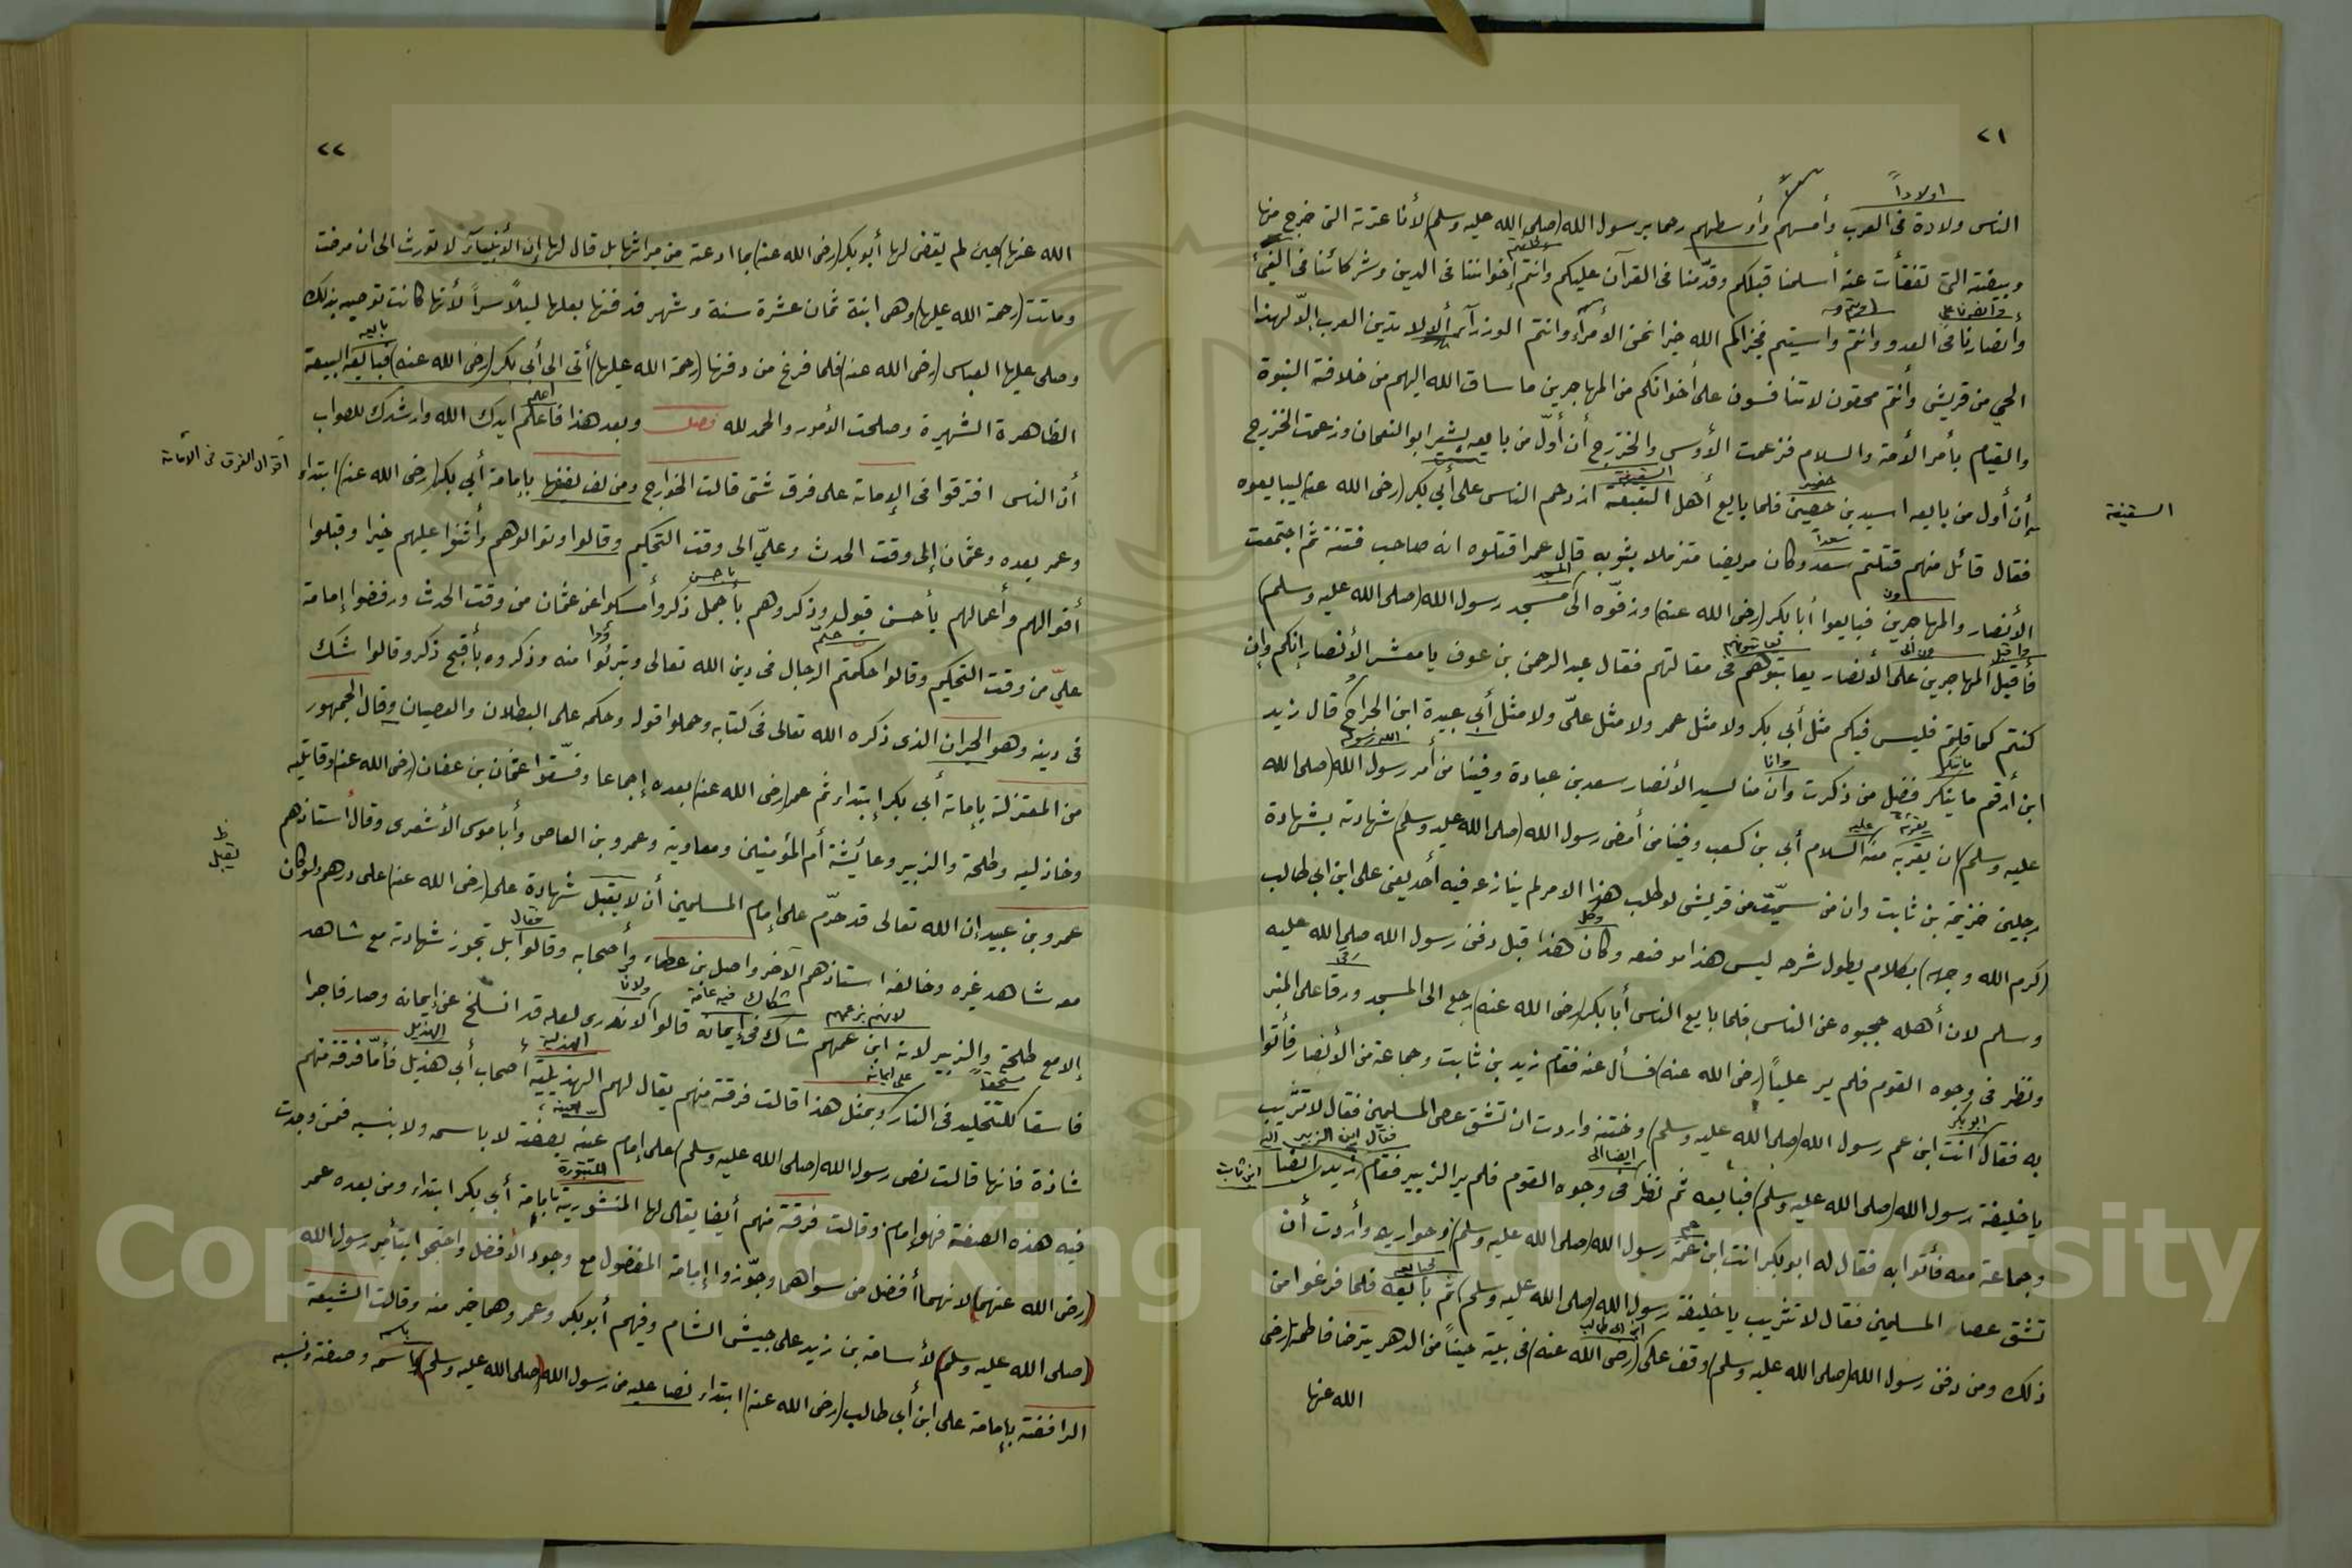 ٢١
اولاداً
الناس ولادة فى العرب وأمسهم وأوسطهم رحما برسول الله (صلى الله عليه وسلم) لأنا عترته التى خرج منها
وبيضته التى تفقأت عنه أسلمنا قبلكم وقدّمنا فى القرآن عليكم وانتم إخواننا فى الدين وشركائنا فى الفئ
وأنصارنا فى العدو وانتم واسيتم فجزاكم الله خيرا نحن الأمرآء وانتم الوزرآء ألا لا تدين العرب إلّا لهذا
الحي من قريش وأنتم محقون لا تنافسون على أخوانكم من المهاجرين ما ساق الله اليهم من خلافة النبوة
والقيام بأمر الأمة والسلام فزعمت الأوس والخزرج أن أوّل من بايعه بشير ابو النعمان وزعمت الخزرج
السقيفة
إن أول من بايعه اسيد بن حصين فلما بايع أهل السقيفة ازدحم الناس على أبي بكر (رضى الله عنه) ليبايعوه
حضير
فقال قائل منهم قتلتم سعد وكان مريضا متزملا بثوبه قال عمر اقتلوه انه صاحب فتنة ثم اجتمعت
سعداً
الأنصار والمهاجرين فبايعوا أبا بكر (رضى الله عنه) وزفّوه الى مسجد رسول الله (صلى الله عليه وسلم)
ون
المسجد
فأقبل المهاجرين على الأنصار يعاتبوهم فى مقالتهم فقال عبد الرحمن بن عوف يا معشر الأنصار إنكم وإن
واقبل
يعاتبونهم
كنتم كما قلتم فليس فيكم مثل أبي بكر ولا مثل عمر ولا مثل علىّ ولا مثل أبي عبيدة ابن الجراح قال زيد
ابن أرقم ما ينكر فضل من ذكرت وان منا لسيد الأنصار سعد بن عبادة وفينا من أمر رسول الله (صلى الله
وانا
عليه وسلم) ان يقرئه منه السلام أبي بن كعب وفينا من أمضى رسول الله (صلى الله عليه وسلم) شهادته بشهادة
رجلين خزيمة بن ثابت وان من سمّيت من قريش لو طلب هذا الامر لم ينازعه فيه أحد يعنى على ابن ابي طالب
(كرم الله وجهه) بكلام يطول شرحه ليس هذا موضعه وكان هذا قبل دفن رسول الله صلى الله عليه
وكل
وسلم لان أهله حجبوه عن الناس فلما بايع الناس أبا بكر (رضى الله عنه) رجع الى المسجد ورقا على المنبر
رقى
ونظر فى وجوه القوم فلم ير علياً (رضى الله عنه) فسأل عنه فقام زيد بن ثابت وجماعة من الأنصار فأتوا
به فقال أنت ابن عم رسول الله (صلى الله عليه وسلم) وختنه واردت ان تشق عصى المسلمين فقال لا تثريب
ابو بكر
يا خليفة رسول الله (صلى الله عليه وسلم) فبايعه ثم نظر فى وجوه القوم فلم ير الزبير فقام زيد ايضا
ايضا الى
فقال اين الزبير
ابن ثابت
وجماعة معه فأتوا به فقال له ابو بكر انت ابن عمة رسول الله (صلى الله عليه وسلم) وحواريه وأردت أن
تشق عصا المسلمين فقال لا تثريب يا خليفة رسول الله (صلى الله عليه وسلم) ثم بايعه فلما فرغوا من
ذلك ومن دفن رسول الله (صلى الله عليه وسلم) وقف على (رضى الله عنه) فى بيته حيناً من الدهر يترضا فاطمة (رضى
ابن ابى طالب
الله عنها
٢٢
الله عنها) حين لم يقض لها أبو بكر (رضى الله عنه) بما ادعته من ميراثها بل قال لها إن الأنبيآء لا تورث الى ان مرضت
وماتت (رحمة الله عليها) وهى ابنة ثمان عشرة سنة وشهر فدفنها بعلها ليلاً سراً لأنها كانت توصيه بذلك
وصلى عليها العباس (رضى الله عنه) فلما فرغ من دفنها (رحمة الله عليها) أتى الى أبي بكر (رضى الله عنه) فبايعه البيعة
بايعه
الظاهرة الشهيرة وصلحت الأمور والحمد لله فصل وبعد هذا فاعلم ايدك الله وارشدك للصواب
اعلم
أقوال الفرق فى الأمامة
أن الناس افترقوا فى الإمامة على فرق شتى قالت الخوارج ومن لف لفها بإمامة أبي بكر (رضى الله عنه) ابتداء
وعمر بعده وعثمان إلى وقت الحدث وعليّ الى وقت التحكيم وقالوا وتوالوهم وأثنوا عليهم خيرا وقبلوا
أقوالهم وأعمالهم بأحسن قبول وذكروهم بأجمل ذكر وأمسكوا عن عثمان من وقت الحدث ورفضوا إمامة
باحسن
عليّ من وقت التحكيم وقالوا حكمتم الرجال فى دين الله تعالى وتبرئوا منه وذكروه بأقبح ذكر وقالوا شك
حكّم
فى دينه وهو الحيران الذى ذكره الله تعالى فى كتابه وحملوا قوله وحكمه على البطلان والعصيان وقال الجمهور
من المعتزلة بإمامة أبي بكر إبتداء ثم عمر (رضى الله عنه) بعده إجماعا وفسّقوا عثمان بن عفان (رضى الله عنه) وقاتليه
وخاذليه وطلحة والزبير وعائيشة أم المؤمنين ومعاوية وعمرو بن العاص وأبا موسى الأشعرى وقال أستاذهم
ظ
تقبل
عمرو بن عبيد إن الله تعالى قد حرّم على إمام المسلمين أن لا يقبل شهادة على (رضى الله عنه) على درهم ولو كان
معه شاهد غيره وخالفه استاذهم الآخر واصل بن عطاء وأصحابه وقالوا بل تجوز شهادته مع شاهد
فقال
إلا مع طلحة والزبير لانه ابن عمهم شاك فى إيمانه قالوا لا ندرى لعله قد انسلخ عن إيمانه وصار فاجرا
لانهم بزعمهم
فاسقا كلتخليد فى النار وبمثل هذا قالت فرقة منهم يقال لهم الهذيلية أصحاب أبي هذيل فأمّا فرقة منهم
مستحقا
على ايمانه
الهذيل
شاذة فانها قالت نص رسول الله (صلى الله عليه وسلم) على إمام عينه بصفته لا باسمه ولا بنسبه فمن وجدت
فيه هذه الصفة فهو إمام وقالت فرقة منهم أيضا يقال لها المنشورية بإمامة أبي بكر ابتداء ومن بعده عمر
(رضى الله عنهما) لانهما أفضل من سواهما وجوّزوا إمامة المفضول مع وجود الأفضل واحتجوا بتأمير رسول الله
(صلى الله عليه وسلم) لأسامة بن زيد على جيش الشام وفيهم أبو بكر وعمر وهما خير منه وقالت الشيعة
الرافضة بإمامة على ابن أبي طالب (رضى الله عنه) ابتداء نصا عليه من رسول الله (صلى الله عليه وسلم) باسمه وصفته ونسبه
باسمه
Copyright © King Saud University